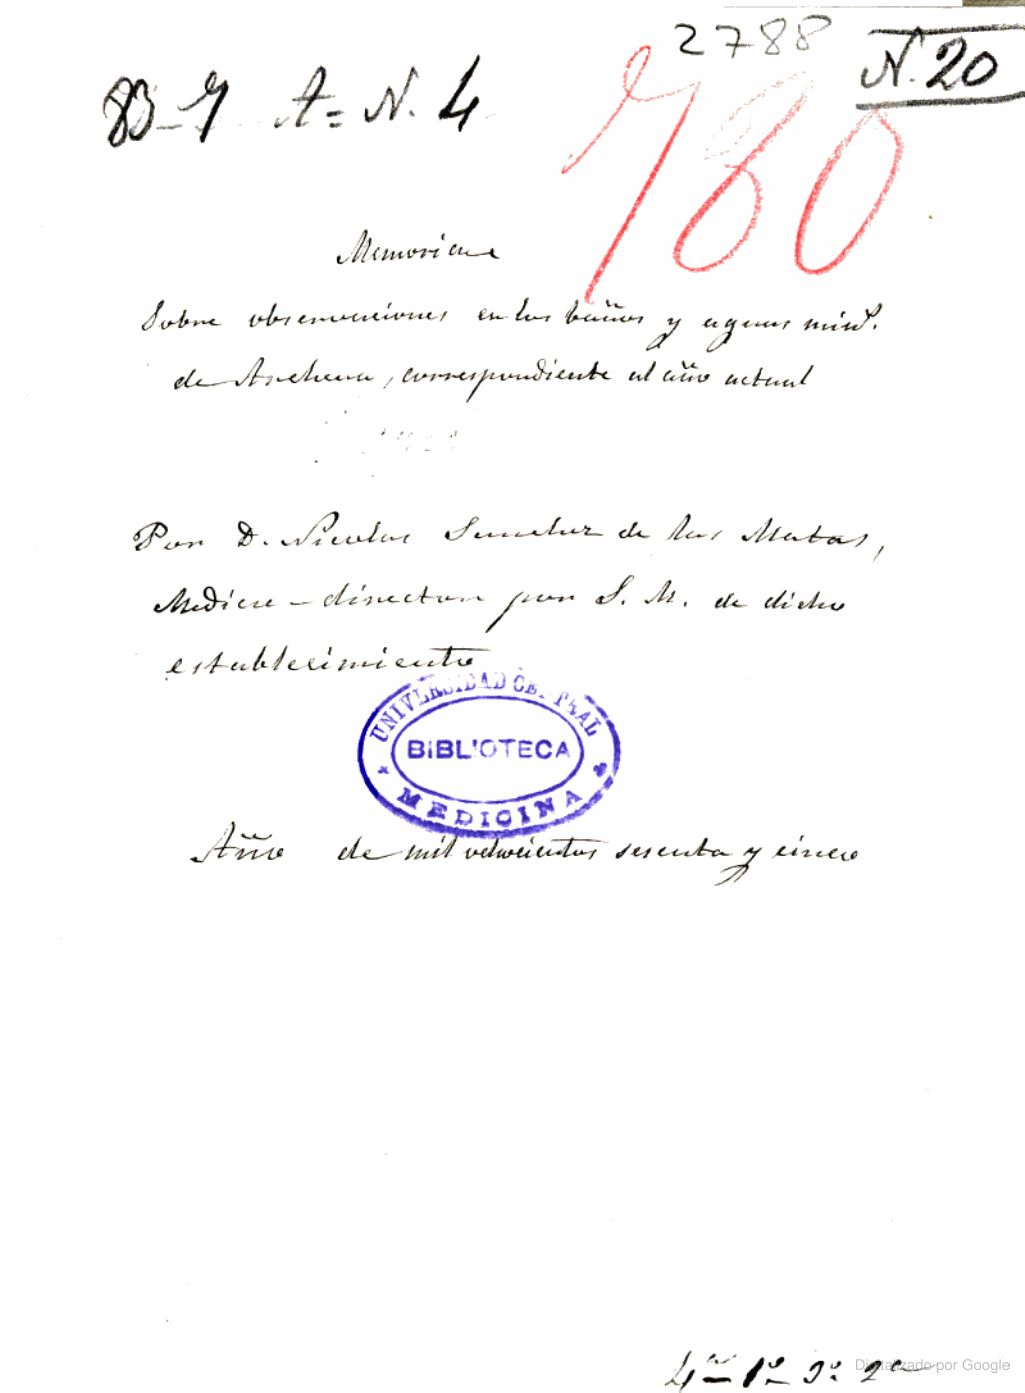 2788
N. 20
83-7 A= N. 4
780
Memoria
Sobre observaciones en los baños y aguas min.s
de Archena, correspondiente al año actual
Por D. Nicolas Sanchez de las Matas,
Medico-director por S. M. de dicho
establecimiento
UNIVERSIDAD CENTRAL
BIBLIOTECA
MEDICINA
Año de mil ochocientos sesenta y cinco
Digitalizado por Google